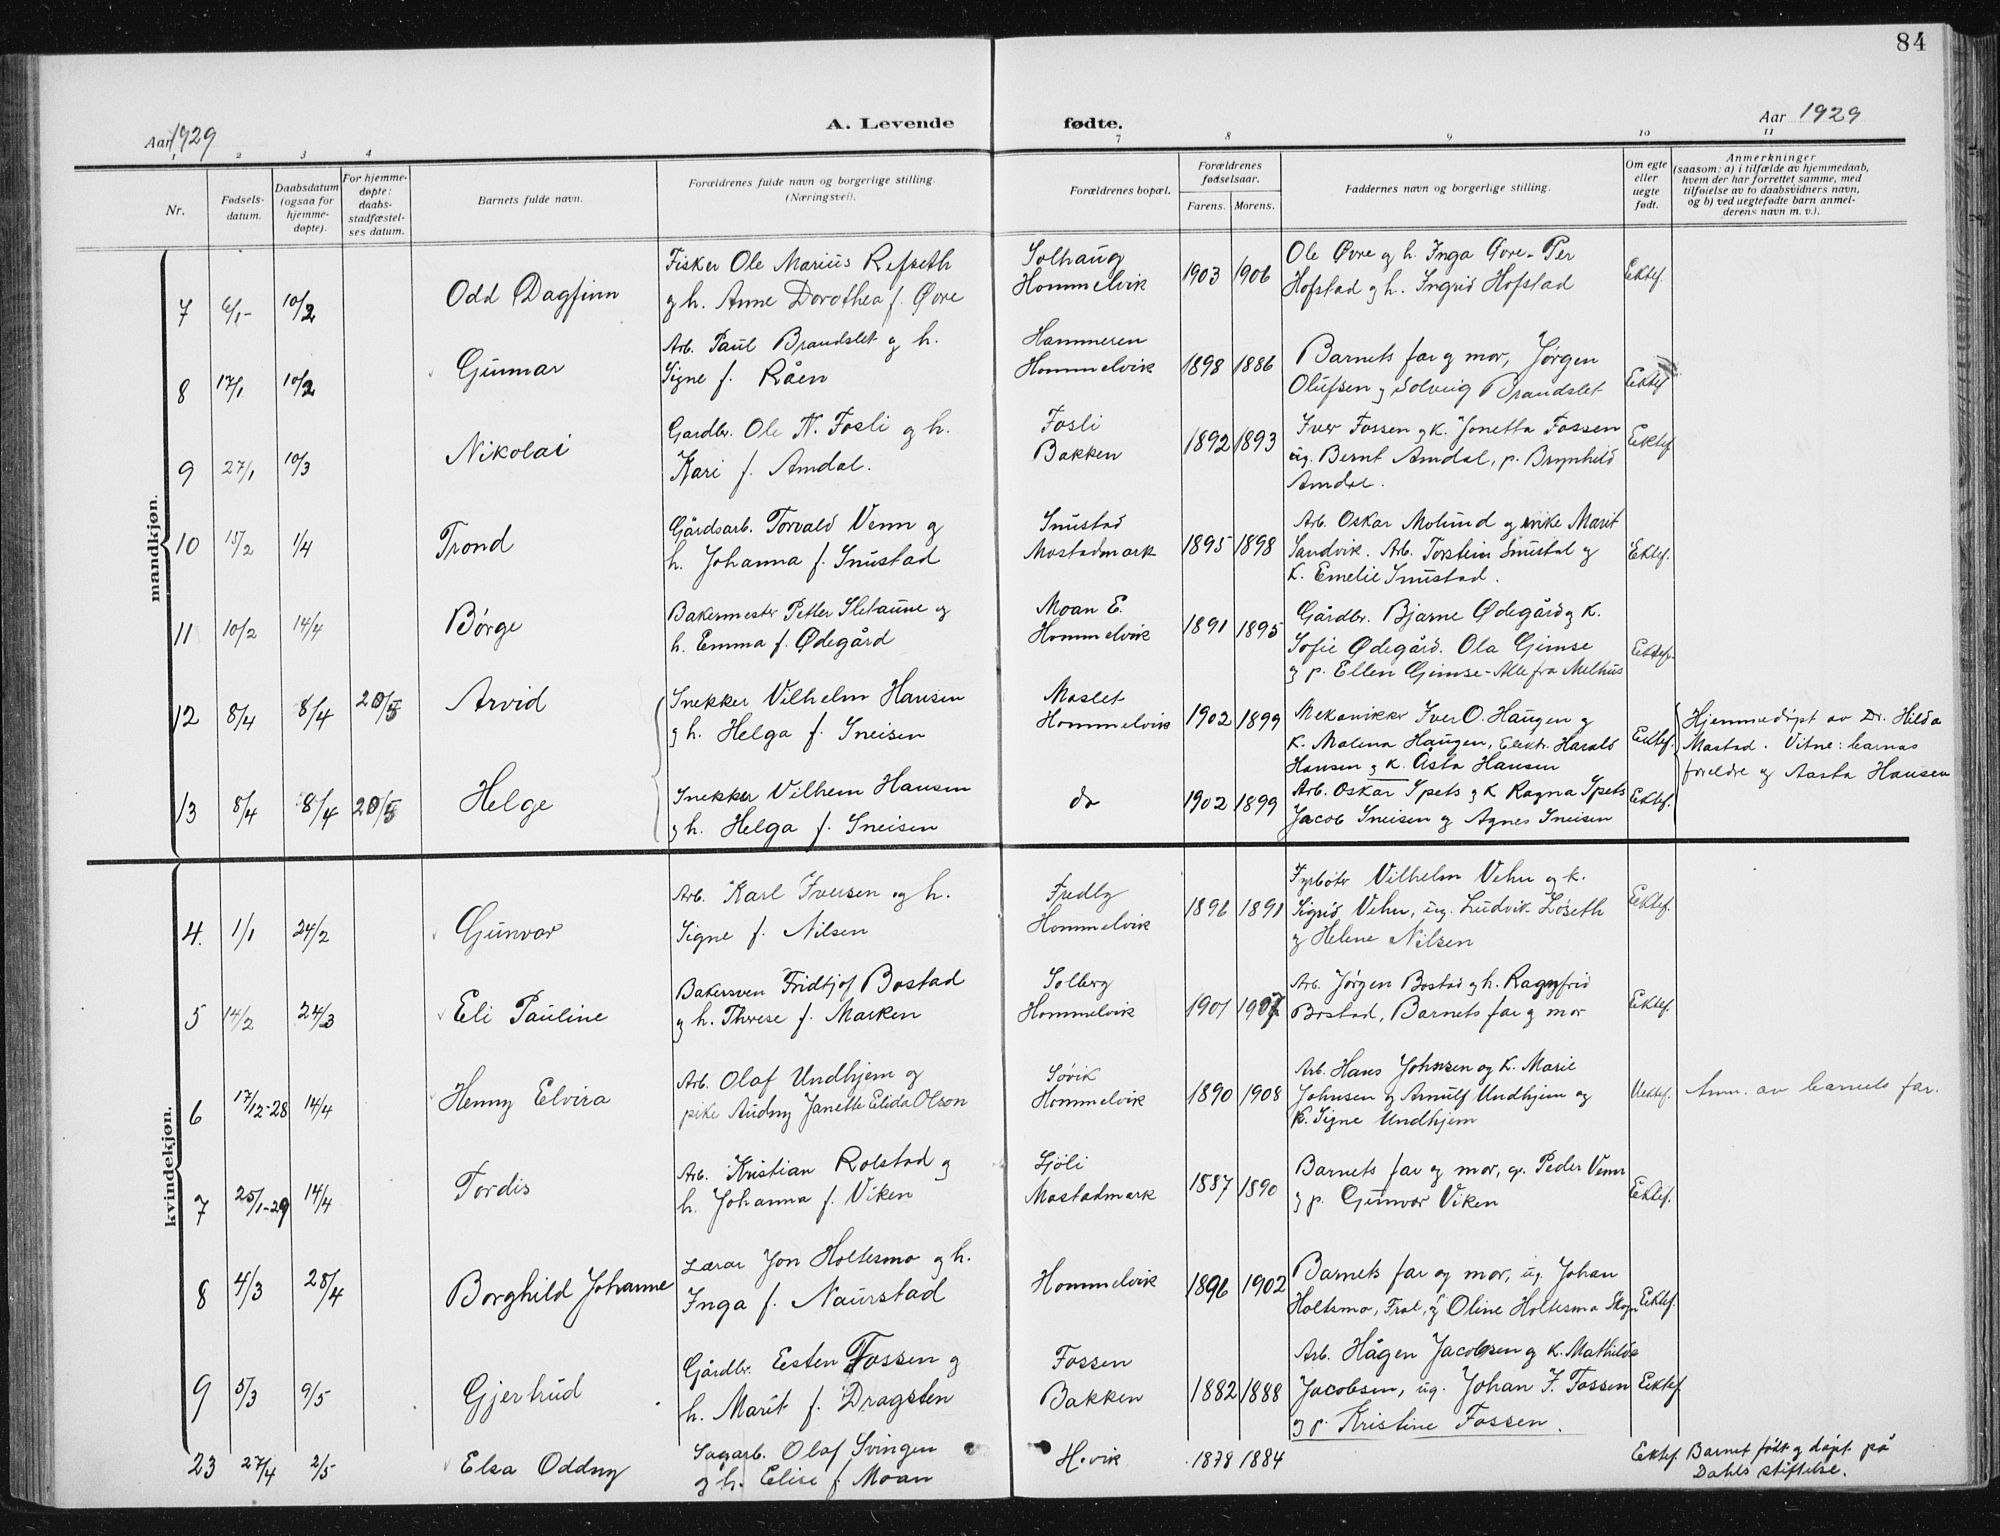 84
Aar 1929
A. Levende fødte.
Aar 1929
1 2 3 4 7 8 9 10 11
Nr.
Fødsels-
datum.
Daabsdatum
(ogsaa for
hjemme-
døpte).
For hjemme-
døpte:
daabs-
stadfæstel-
ses datum.
Barnets fulde navn.
Forældrenes fulde navn og borgerlige stilling.
(Næringsvei).
Forældrenes bopæl.
Forældrenes
fødselsaar.
Farens. Morens.
Faddernes navn og borgerlige stilling.
Om egte
eller
uegte
født.
Anmerkninger
(saasom: a) i tilfælde av hjemmedaab,
hvem der har forrettet samme, med
tilføielse av to daabsvidners navn,
og b) ved uegtefødte barn anmel-
derens navn m. v.).
mandkjøn.
7 6/1- 10/2 Odd Dagfinn
Fisker Ole Marius Refseth
og h. Anne Dorothea f. Øvre
Solhaug
Hommelvik
1903 1906
Ole Øvre og h. Inga Øvre- Per
Hofstad og h. Ingrid Hofstad
Ektef.
8 17/1 10/2 Gunnar
Arb. Paul Brandslet og h.
Signe f. Råen
Hammeren
Hommelvik
1898 1886
Barnets far og mor, Jørgen
Olufsen og Solveig Brandslet
Ektef
9 27/1 10/3 Nikolai
Gardbr. Ole N. Fosli og h.
Kari f. Amdal.
Fosli
Bakken
1892 1893
Iver Fossen og k. Jonetta Fossen
ug. Bernt Amdal, p. Brynhild
Amdal.
Ektef
10 15/2 1/4 Trond
Gårdsarb. Torvald Venn og
h. Johanna f. Snustad
Snustad
Mostadmark
1895 1898
Arb. Oskar Molund og enke Marit
Sandvik. Arb. Torstein Snustad og
k. Emelie Snustad.
Ektef.
11 10/2 14/4 Børge
Bakermester Petter Sletaune og
h. Emma f. Ødegård
Moan E.
Hommelvik
1891 1895
Gårdbr. Bjarne Ødegård og k.
Sofie Ødegård. Ola Gimse
og p. Ellen Gimse - Alle fra Melhus
Ektef.
12 8/4 8/4 20/5 Arvid
Snekker Vilhelm Hansen
og h. Helga f. Sneisen
Moslet
Hommelvik
1902 1899
Mekanikker Iver O. Haugen og
k. Malena Haugen, Elektr. Harald
Hansen og k. Åsta Hansen
Ektef.
Hjemmedøpt av Dr. Hilda
Mostad. Vitne: barnas
foreldre og Aasta Hansen
13 8/4 8/4 20/5 Helge
Snekker Vilhem Hansen
og h. Helga f. Sneisen
do
1902 1899
Arb. Oskar Spets og k Ragna Spets
Jacob Sneisen og Agnes Sneisen
Ektef.
kvindekjøn.
4. 1/1 24/2 Gunvor
Arb. Karl Iversen og h.
Signe f. Nilsen
Fredly
Hommelvik
1896 1891
Fyrbøter Vilhelm Vehn og k.
Sigrid Vehn, ug. Ludvik Løseth
og Helene Nilsen
Ektef.
5 14/2 24/3 Eli Pauline
Bakersven Fridtjof Bostad
og h. Threse f. Marken
Solberg
Hommelvik
1901 1907
Arb. Jørgen Bostad og h. Ragnfrid
Bostad, Barnets far og mor
Ektef.
6 17/12-28 14/4 Henny Elvira
Arb. Olaf Undhjem og
pike Audny Janette Elida Olson
Søvik
Hommelvik
1890 1908
Arb. Hans Johnsen og k. Marie
Johnsen og Arnulf Undhjem og
k. Signe Undhjem
Uektef.
Anm. av barnets far.
7 25/1-29 14/4 Tordis
Arb. Kristian Rolstad og
h. Johanna f. Viken
Sjøli
Mostadmark
1887 1890
Barnets far og mor, g. Peder Venn
og p. Gunvor Viken
Ektef.
8 4/3 28/4 Borghild Johanne
Lærer Jon Holtesmo og h.
Inga f. Naurstad
Hommelvik
1896 1902
Barnets far og mor, ug. Johan
Holtsmo, Frol, og Oline Holtesmo Skogn
Ektef.
9 5/3 9/5 Gjertrud
Gårdbr. Eesten Fossen og
h. Marit f. Dragsten
Fossen
Bakken
1882 1888
Arb. Hågen Jacobsen og k. Mathilde
Jacobsen, ug. Johan J. Fossen
og p. Kristine Fossen.
Ektef
23 27/4 2/5 Elsa Oddny
Sagarb. Olaf Svingen
og h. Elise f. Moan
H.vik
1878 1884
Ektef. Barnet født og døpt på
Dahls stiftelse.